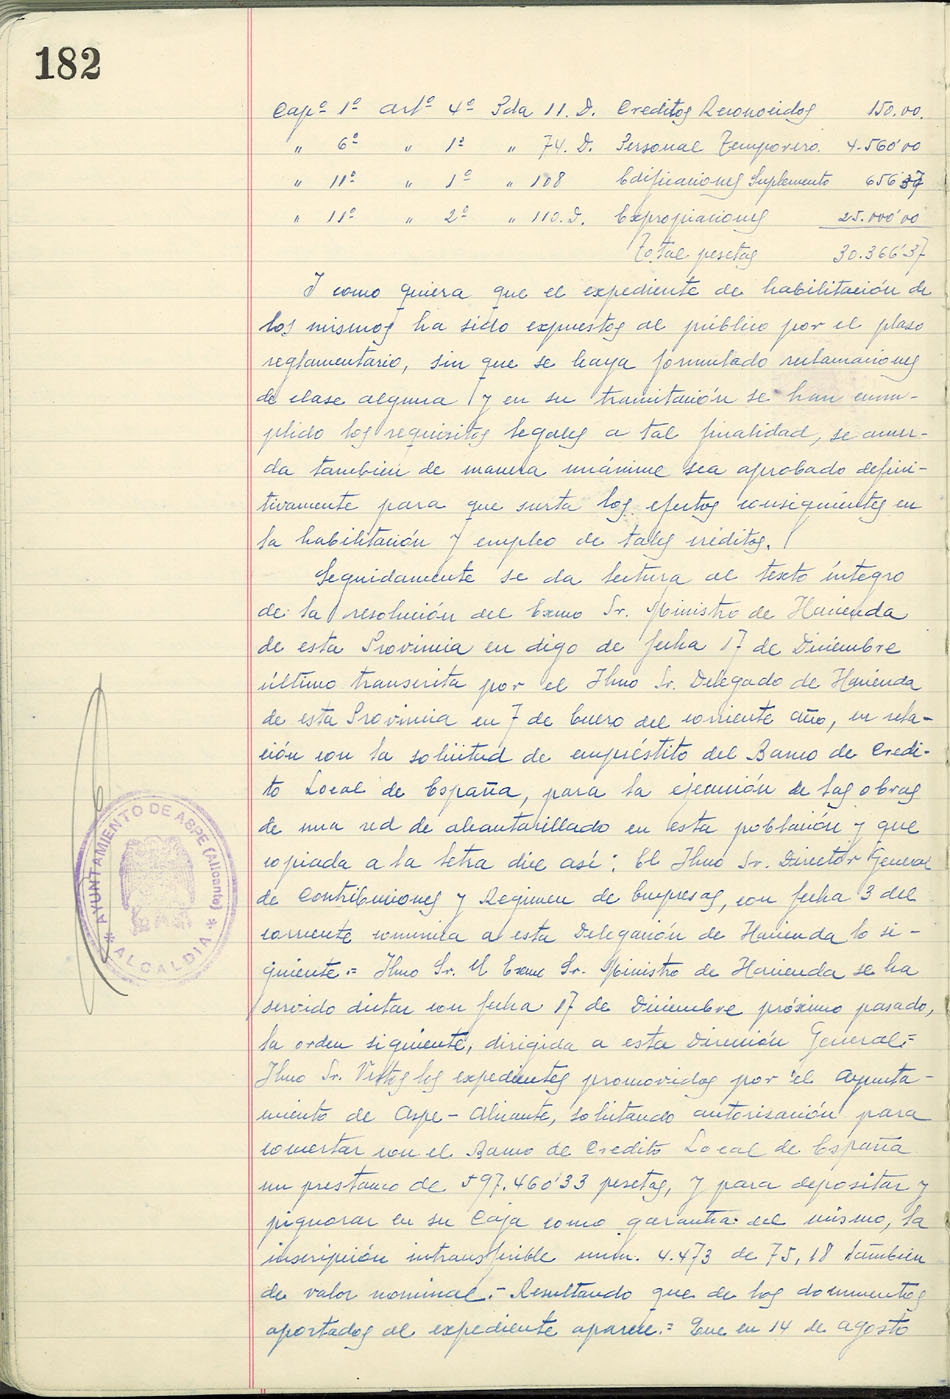 182
Capº 1º artº 4º Pda 11. D. Creditos Reconocidos 150.00.
" 6º " 1º " 74. D. Personal Temporero. 4.560'00
" 11º " 1º " 108 Edificaciones Suplemento 656'37
" 11º " 2º " 110. D. Expropiaciones 25.000'00
Total pesetas 30.366'37
Y como quiera que el expediente de habilitación de
los mismos ha sido expuestos al público por el plaso
reglamentario, sin que se haya formulado reclamaciones
de clase alguna y en su tramitación se han cum-
plido los requisitos legales a tal finalidad, se acuer-
da también de manera unánime sea aprobado defini-
tivamente para que surta los efectos consiguientes en
la habilitación y empleo de tales créditos.
Seguidamente se da lectura al texto íntegro
de la resolución del Excmo Sr. Ministro de Hacienda
de esta Provincia en digo de fecha 17 de Diciembre
último transcrita por el Ilmo Sr. Delegado de Hacienda
de esta Provincia en 7 de Enero del corriente año, en rela-
ción con la solicitud de empréstito del Banco de Credi-
to Local de España, para la ejecución de las obras
de una red de alcantarillado en esta población y que
copiada a la letra dice así: El Ilmo Sr. Director General
de Contribuciones y Regimen de Empresas, con fecha 3 del
corriente comunica a esta Delegación de Hacienda lo si-
guiente.= Ilmo Sr. El Excmo Sr. Ministro de Hacienda se ha
servido dictar con fecha 17 de Diciembre próximo pasado,
la orden siguiente, dirigida a esta Dirección General:=
Ilmo Sr. Vistos los expedientes promovidos por el Ayunta-
miento de Aspe-Alicante, solicitando autorisación para
concertar con el Banco de Credito Local de España
un prestamo de 597.460'33 pesetas, y para depositar y
pignorar en su Caja como garantia del mismo, la
inscripción intransferible num. 4.473 de 75,18 también
de valor nominal.- Resultando que de los documentos
aportados al expediente aparece.= Que en 14 de agosto
AYUNTAMIENTO DE ASPE (Alicante)
* ALCALDIA *